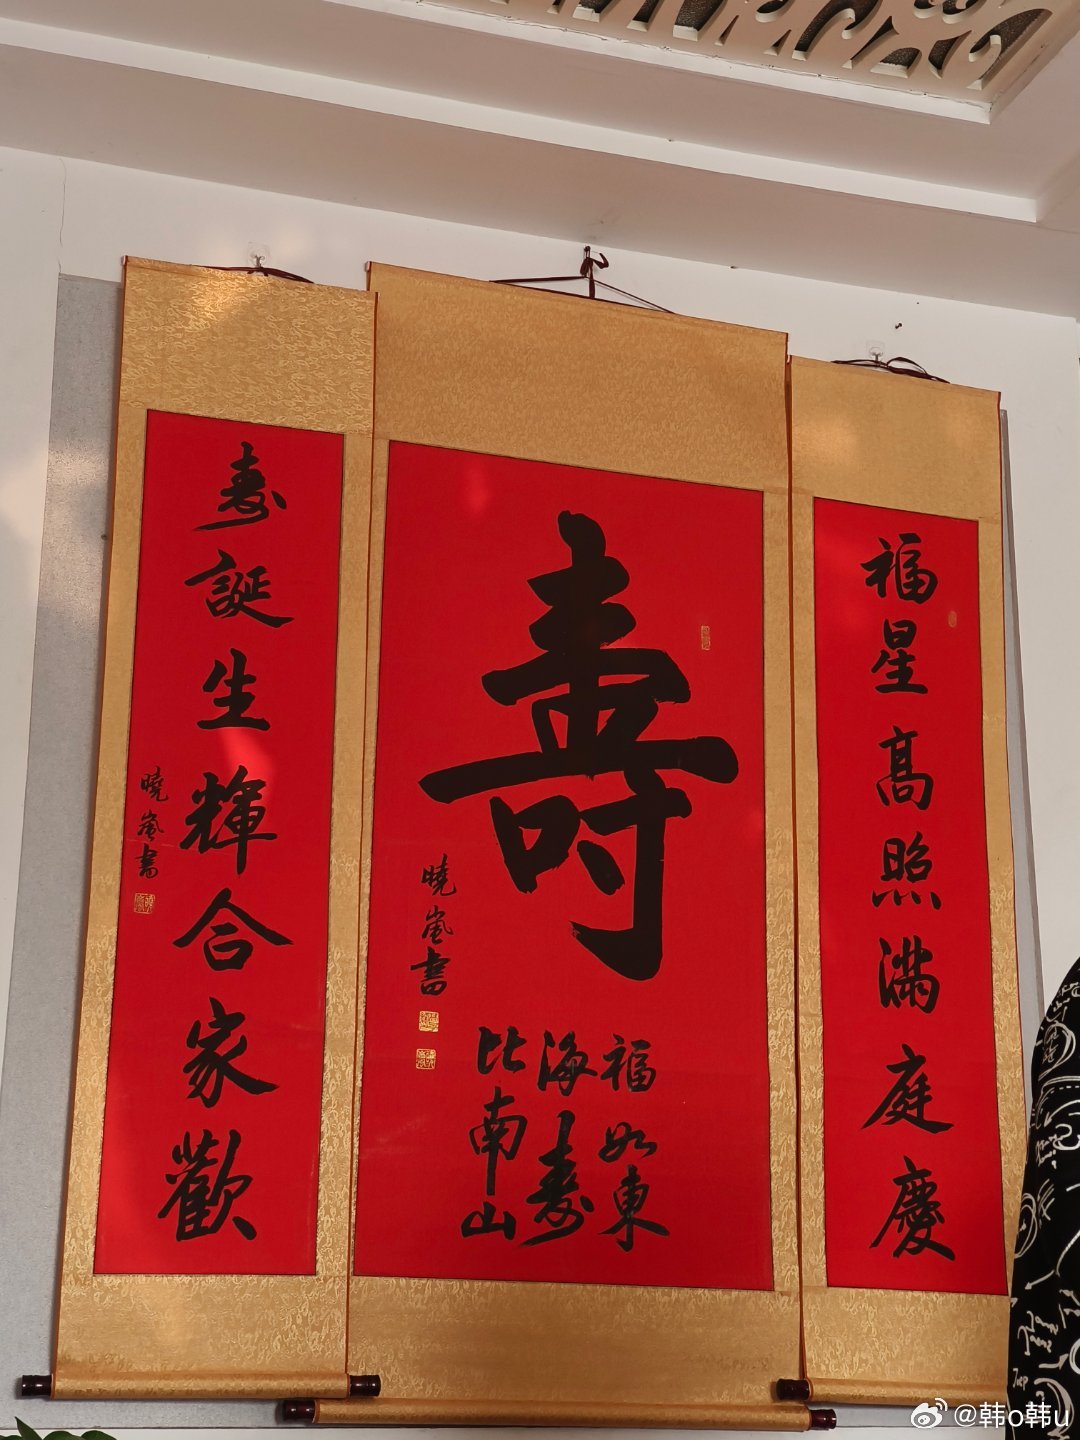 福星高照滿庭慶
壽
福如東
海壽
比南山
曉嵐書
壽誕生輝合家歡
曉嵐書
@韩o韩u